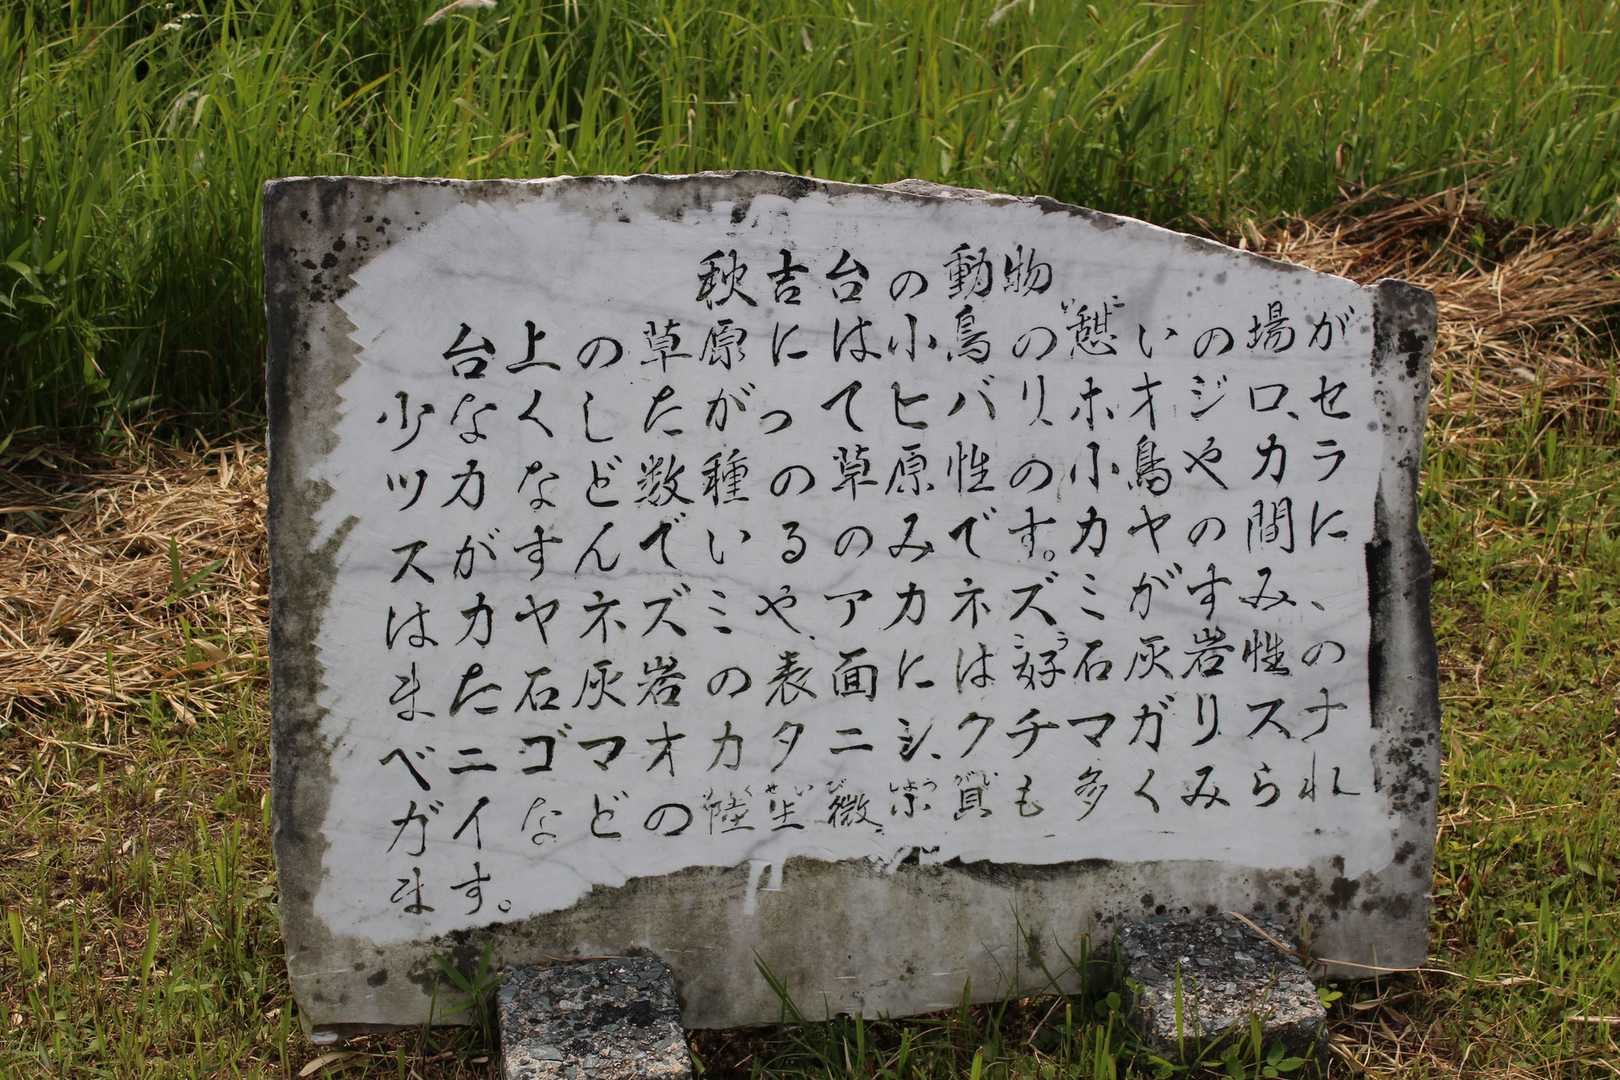 秋吉台の動物
いこ
台上の草原には小鳥の憩いの場が
少なくしたがってヒバリ、ホオジロ、セ
ツカなど数種の草原性の小鳥やカラ
スがすんでいるのみです。カヤの間に
はカヤネズミや、アカネズミがすみ、
こう
また石灰岩の表面には好石灰岩性の
ベニゴマオカタニシ、クチマガリスナ
りくせいびしょうがい
ガイなどの陸生微小貝も多くみられ
ます。